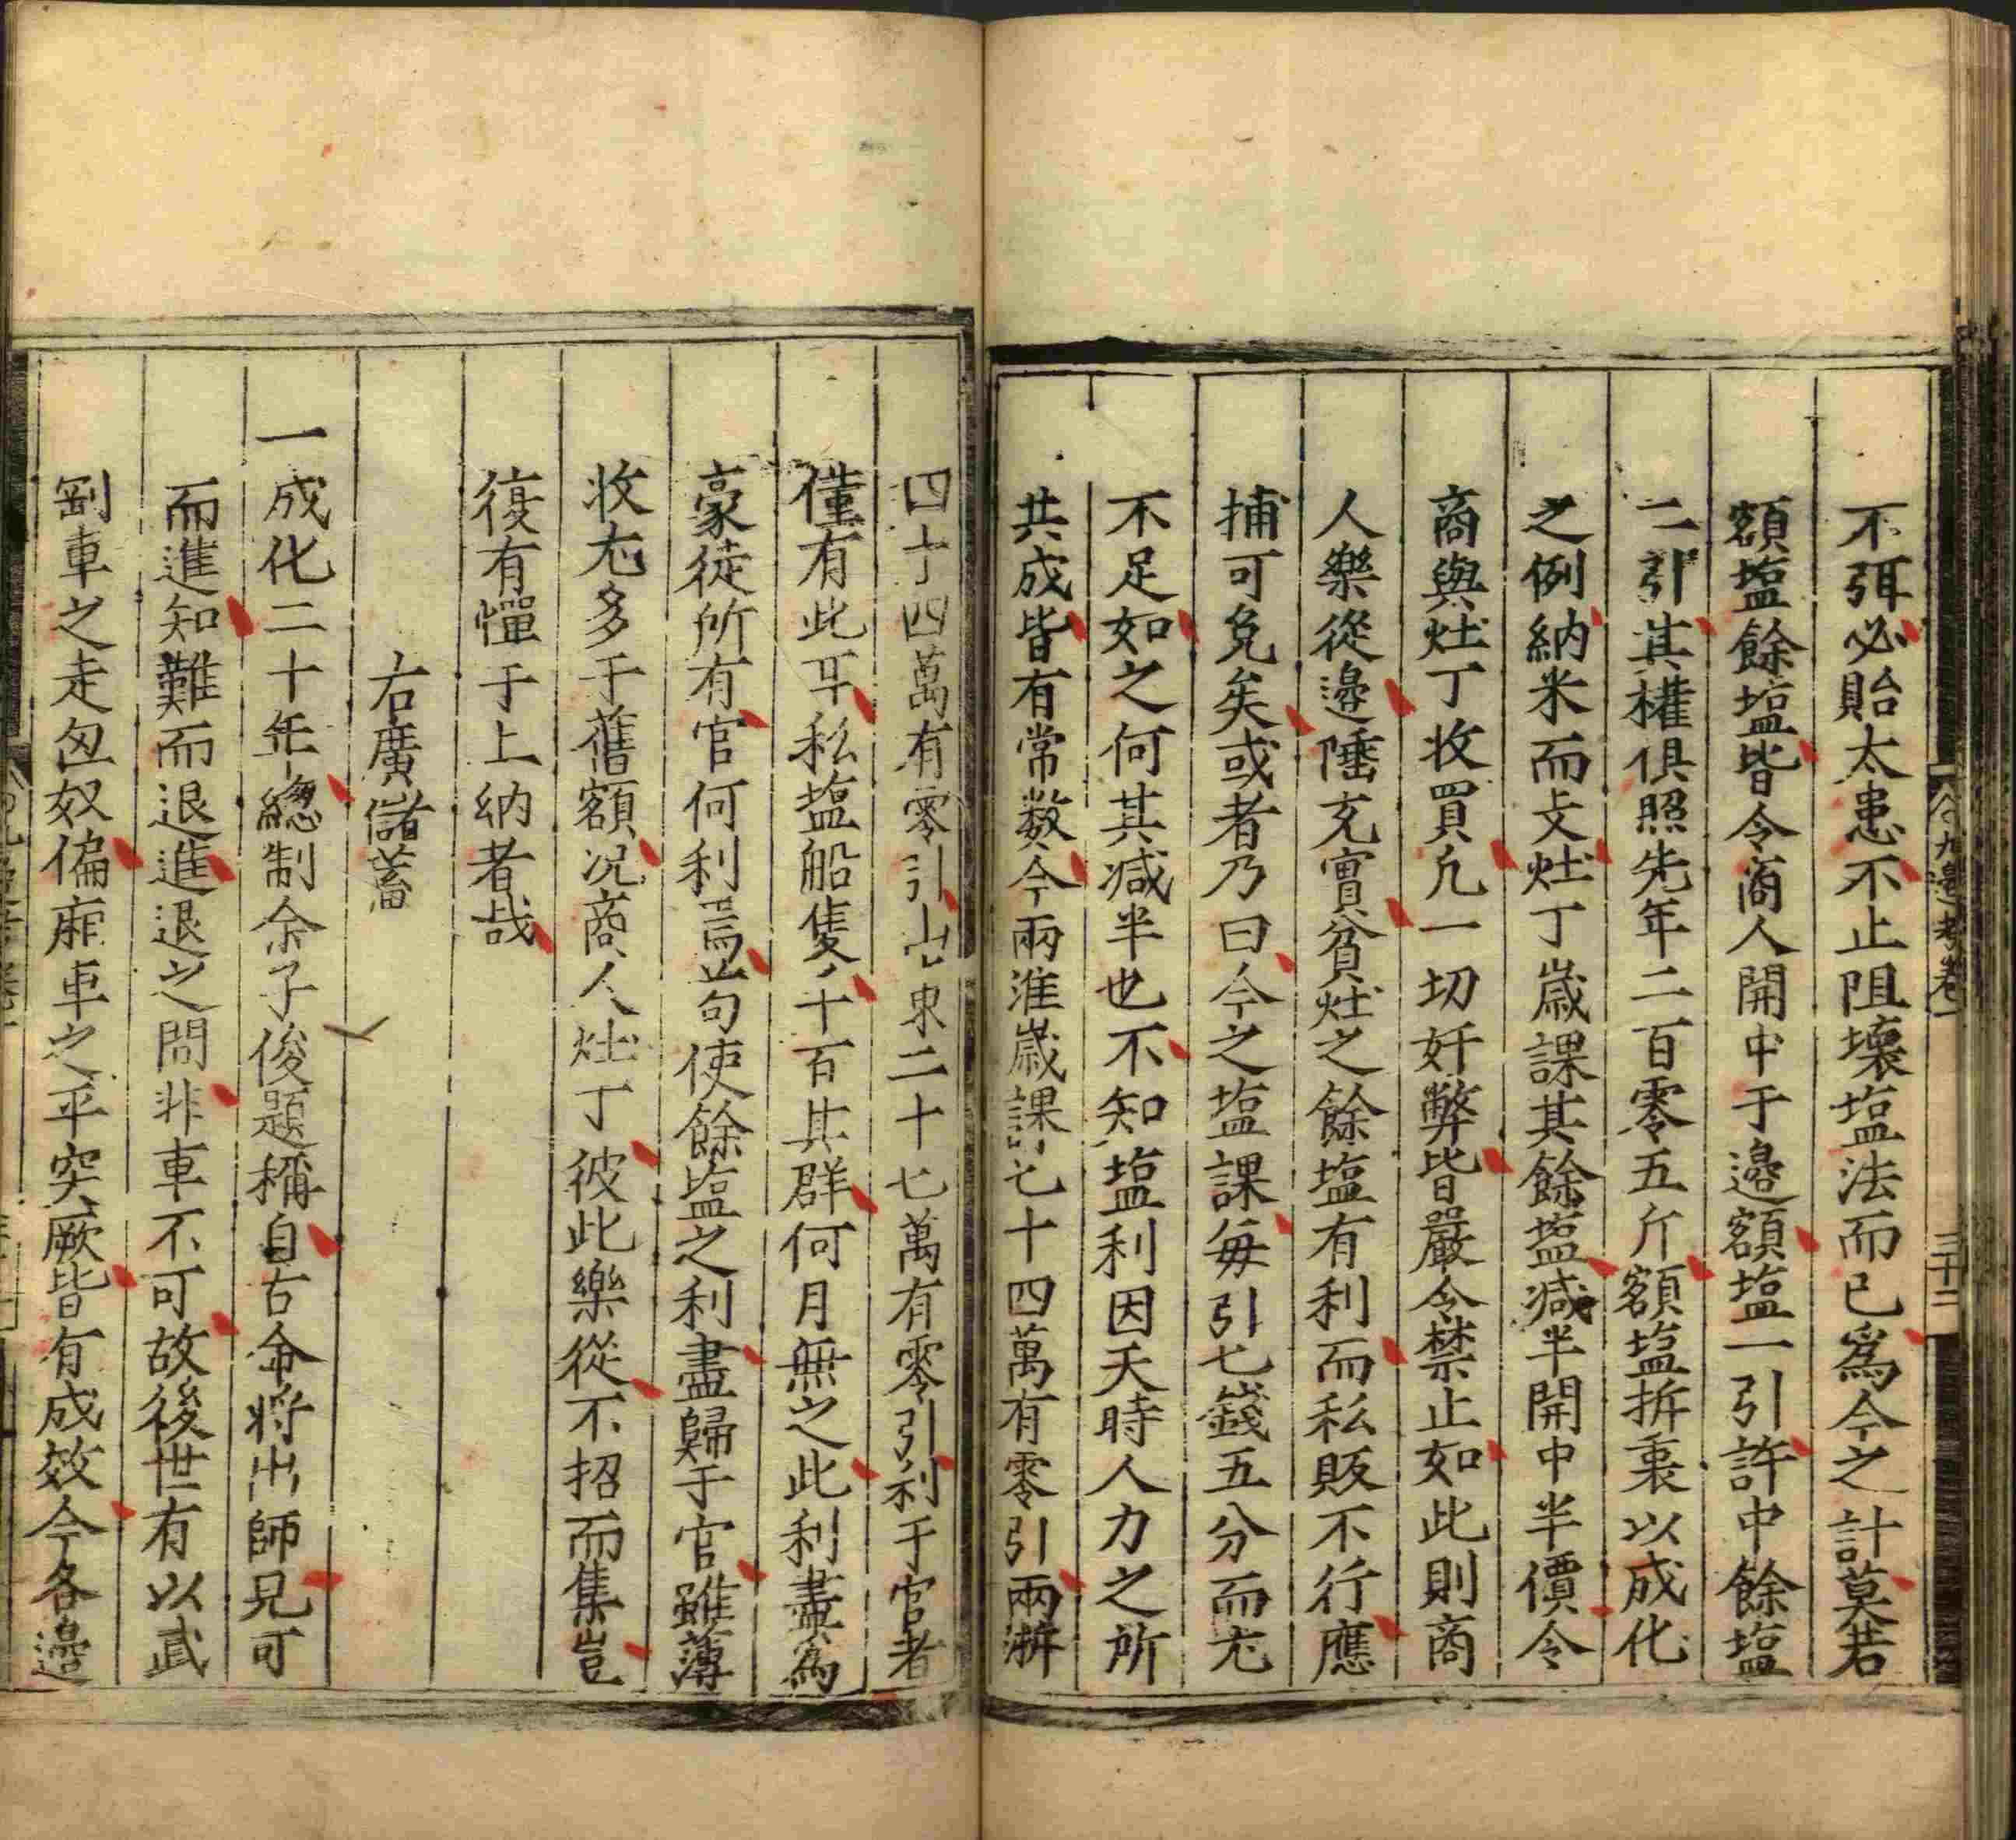 不弭必貽太患不止阻壞塩法而已爲今之計莫若
額塩餘塩皆令商人開中于邉額塩一引許中餘塩
二引其權俱照先年二百零五斤額塩拆裹以成化
之例納米而支灶丁歲課其餘塩减半開中半價令
商與灶丁收買凢一切奸弊皆嚴令禁止如此則商
人樂從邉陲充實貧灶之餘塩有利而私販不行應
捕可免矣或者乃曰今之塩課毎引七錢五分而尤
不足如之何其减半也不知塩利因天時人力之所
共成皆有常数今兩淮歲課七十四萬有零引兩浙
四十四萬有零引山東二十七萬有零引利于官者
僅有此耳私塩船隻千百其群何月無之此利盡爲
豪徒所有官何利焉苟使餘塩之利盡歸于官雖薄
收尤多于舊額况商人灶丁彼此樂從不招而集豈
復有憚于上納者哉
右廣儲蓄
一成化二十年緫制余子俊題稱自古命將出師見可
而進知難而退進退之間非車不可故後世有以武
剛車之走匈奴偏廂車之平突厥皆有成效今各邉
九邉考卷一
三十二